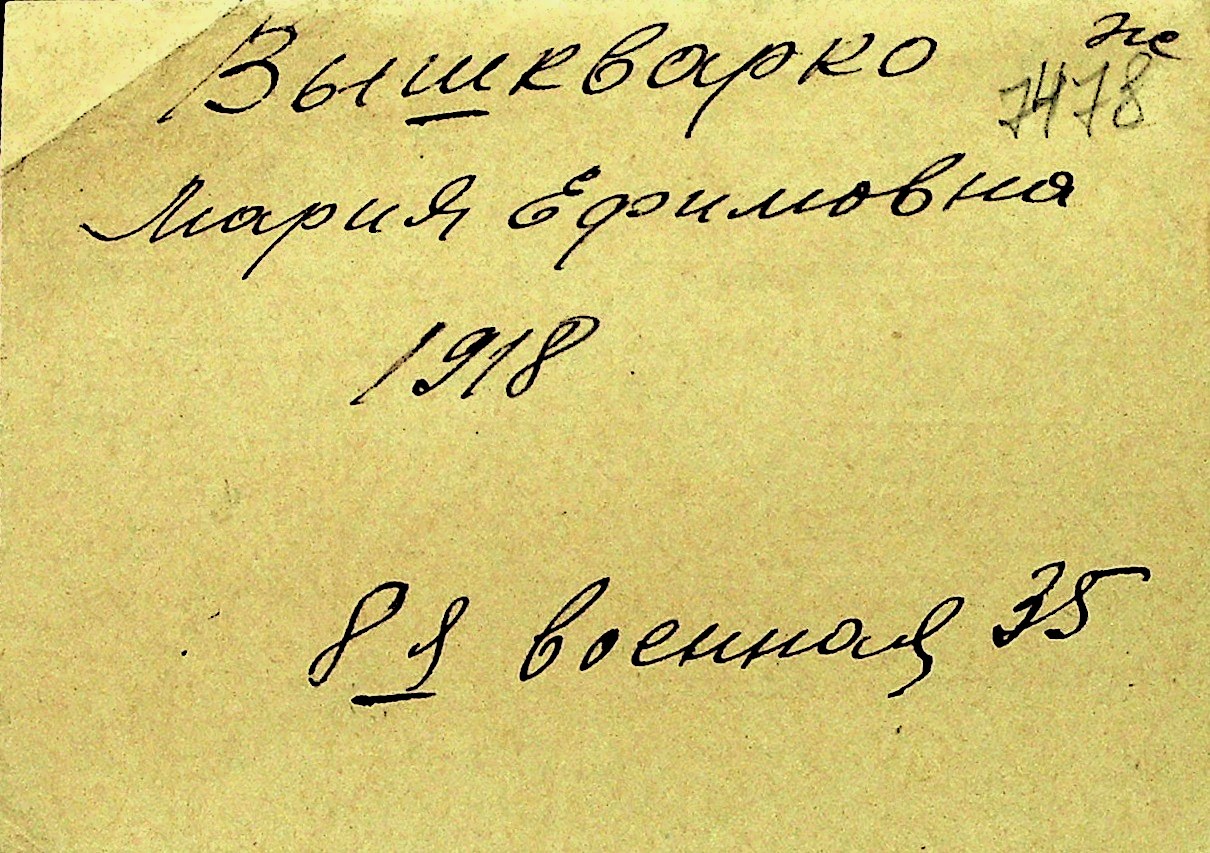 Вышкварко
7478
Мария Ефимовна
1918
8я военная 35